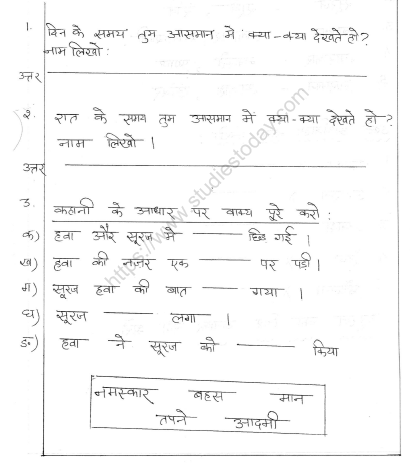 1. दिन के समय तुम आसमान में क्या-क्या देखते हो?
नाम लिखो:
उत्तर
२. रात के समय तुम आसमान में क्या-क्या देखते हो?
नाम लिखो।
उत्तर
3. कहानी के आधार पर वाक्य पूरे करो:
क) हवा और सूरज में ——— छिड़ गई।
ख) हवा की नज़र एक ——— पर पड़ी।
ग) सूरज हवा की बात ——— गया।
घ) सूरज ——— लगा।
ङ) हवा ने सूरज को ——— किया
नमस्कार बहस मान
तपने आदमी
https://www.studiestoday.com